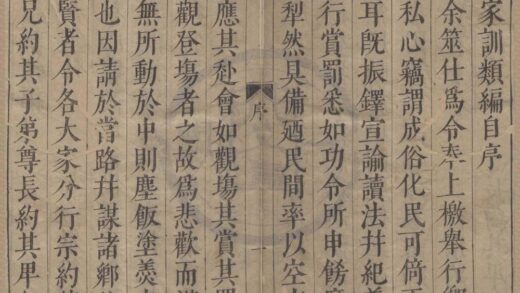 家訓類編自序
余筮仕爲令奉上檄舉行鄉
私心竊謂成俗化民可倚而
耳旣振鐸宣諭讀法幷紀善
行賞罰悉如功令所申飭
犁然具備廼民間率以空文
序
一
應其赴會如觀塲其賞其罰
觀登塲者之故爲悲歡而漠
無所動於中則塵飯塗羹
也因請於當路幷謀諸鄉
賢者令各大家分行宗約
兄約其子弟尊長約其卑